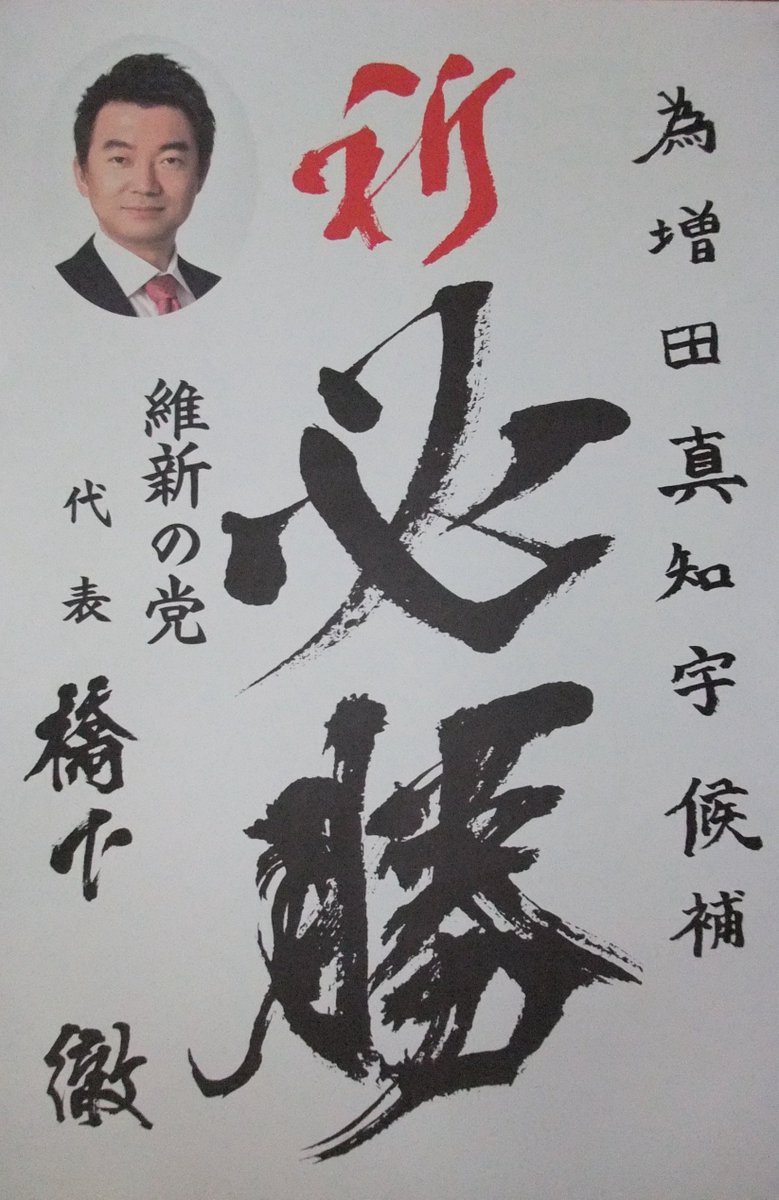 為増田真知宇候補
祈
必勝
維新の党
代表
橋下徹